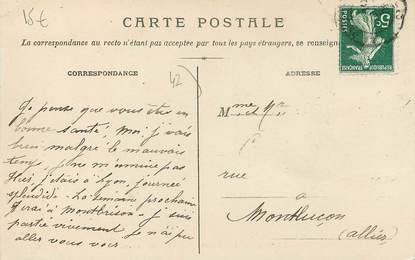 15€
CARTE POSTALE
La correspondance au recto n'étant pas acceptée par tous les pays étrangers, se renseign
5c
POSTES
REPUBLIQUE FRANÇAISE
CORRESPONDANCE
ADRESSE
42
Je pense que vous êtes en
bonne santé; moi je vais
bien malgré le mauvais
temps, je ne m'ennuie pas
Hier j'étais à Lyon, journée
splendide. La semaine prochaine
j'irai à Montbrison. Je suis
partie vivement je n'ai pu
aller vous voir
Mme
rue
à
Montluçon
(allier)